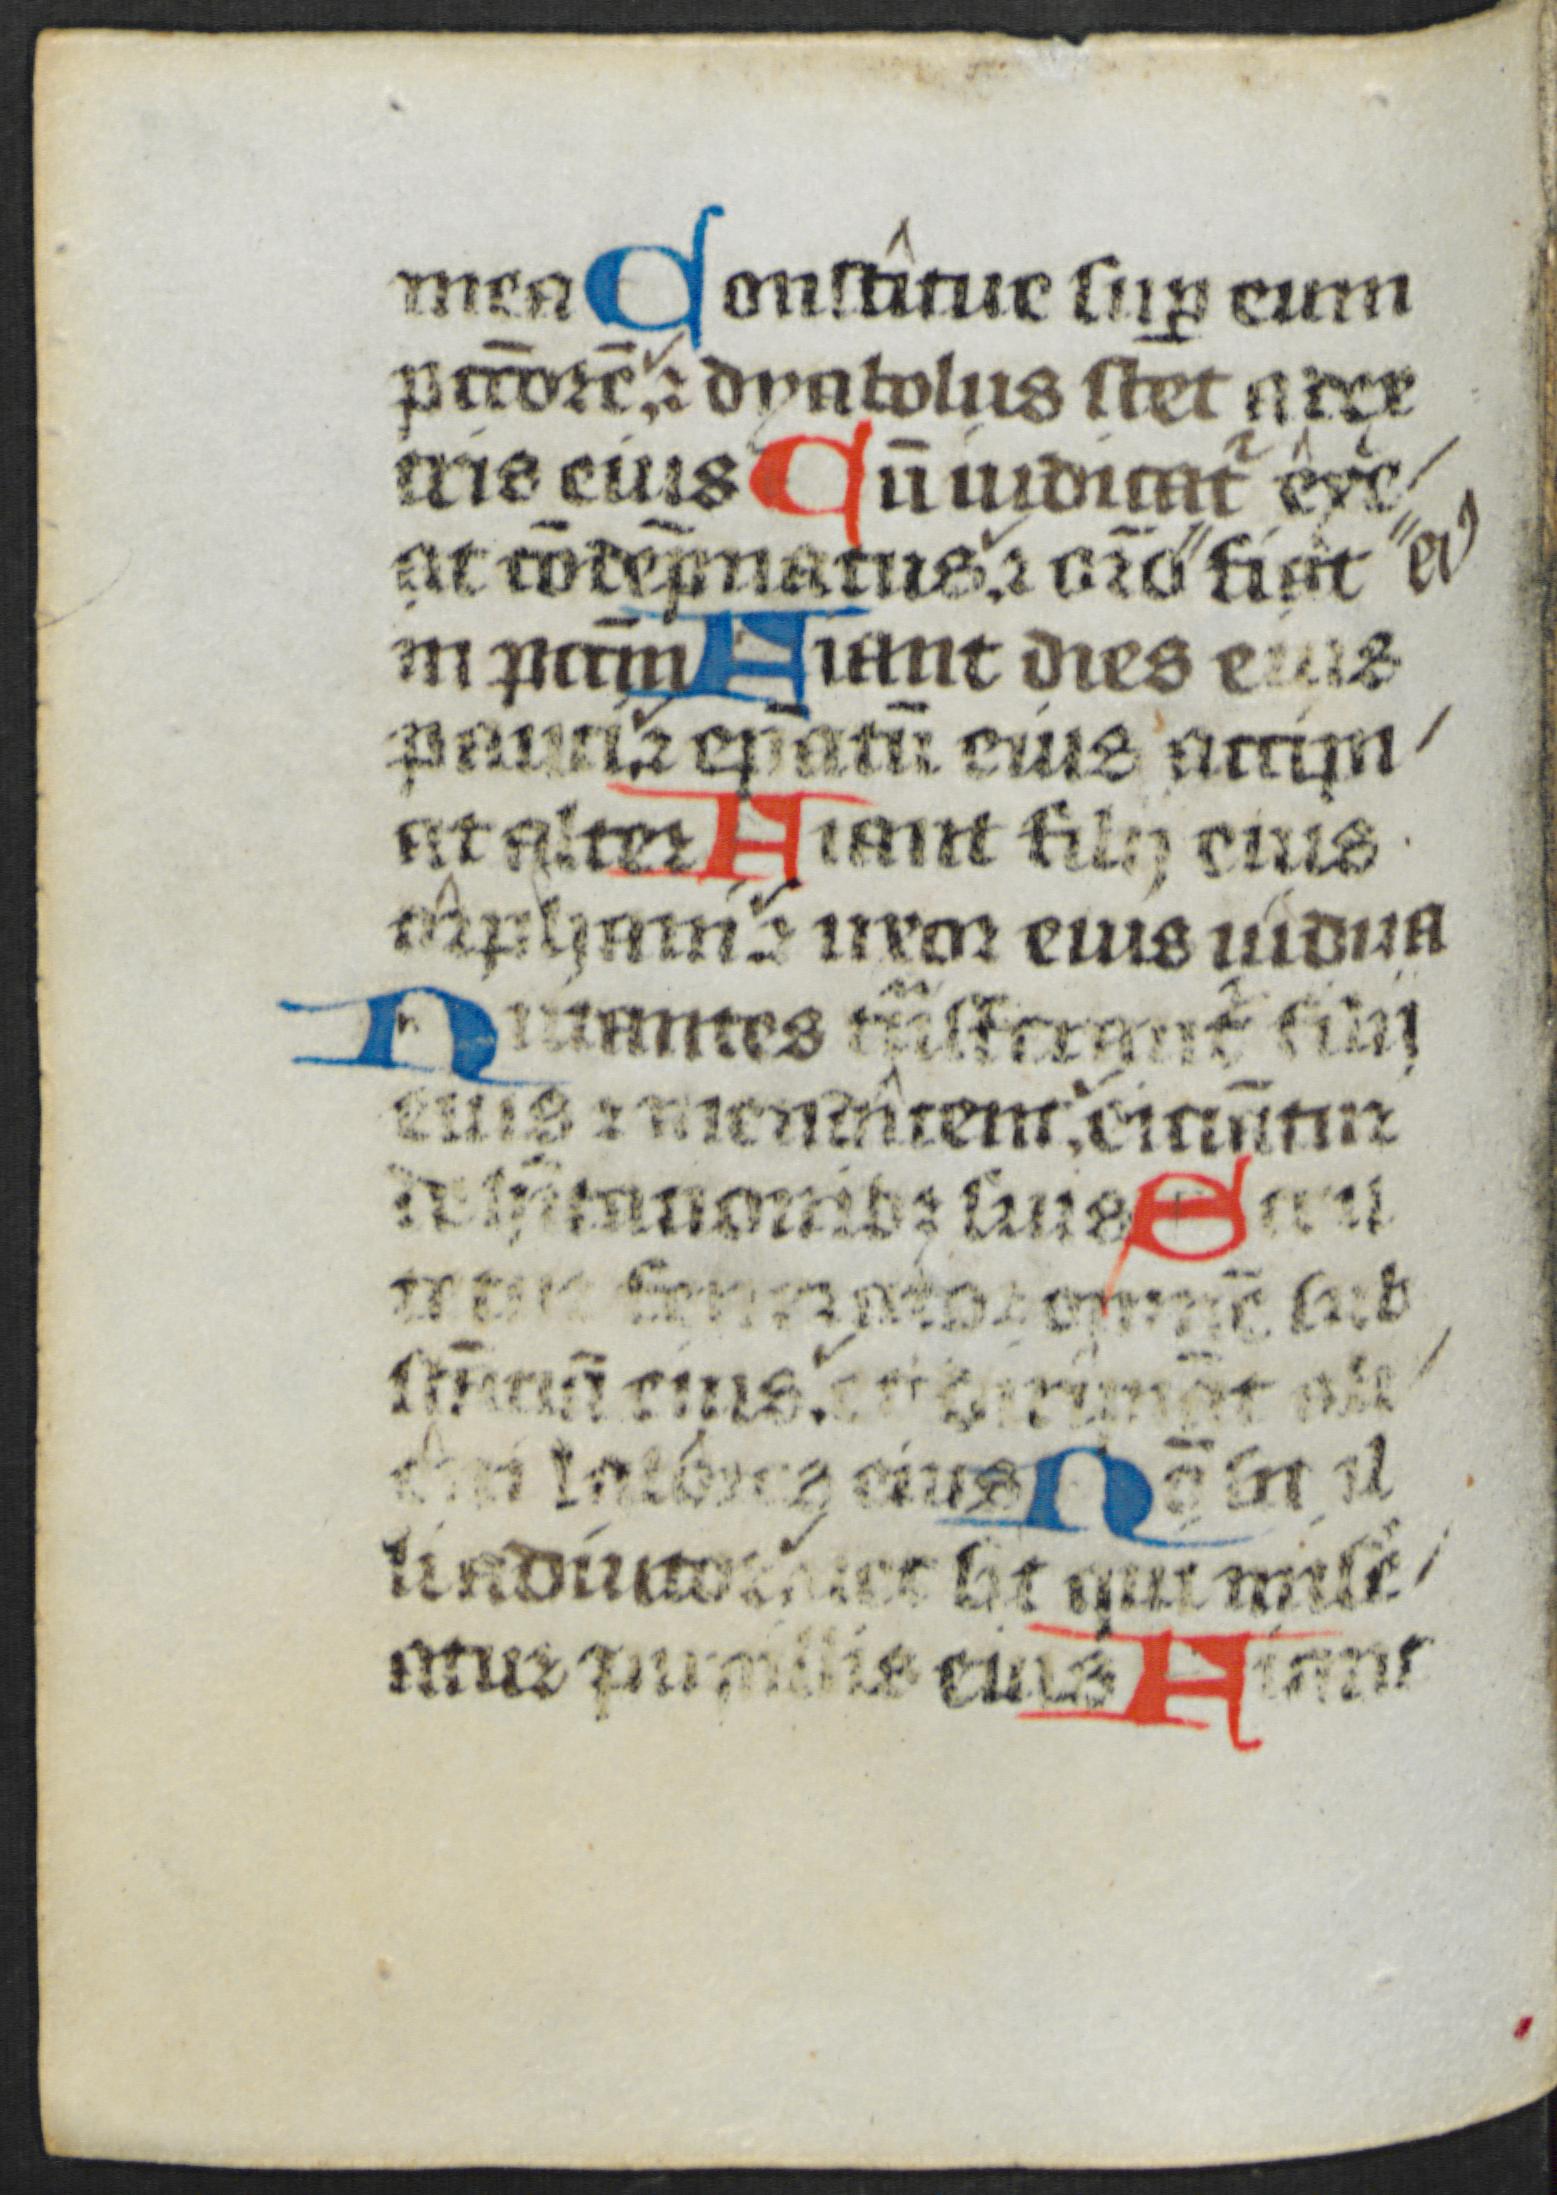 mea Constitue sup̱ eum
pctōrē, ⁊ dyabolus stēt a dex
tris eius Cū iudicat᷑ exe/
at cōdēp̄natus, ⁊ oro᷒ "fiat "ei
in pctm̄ Fiant dies eius
pauci, ⁊ ep̄atū eius accipi/
at alter Fiant filij eius
orphani, ⁊ uxor eius uidua
Nutantes trāsferant᷑ filij
eius ⁊ mendicent, eiciant᷑ur
de hītationib; suis Scru
tetur fenerator omnē sub
stāciā eius, et diripiāt ali
eni labores eius Nō sit il
li adiutor, nec sit qui mise/
atur pupillis eius Fiant